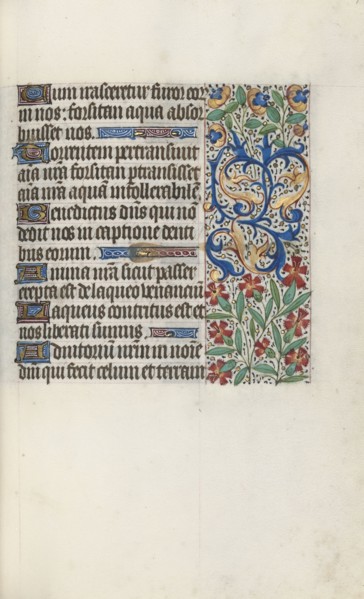 Cum irasceretur furor eor
in nos: forsitan aqua absor
buisset nos.
Torrentem pertransivit
aīa nr̄a forsitan ptransisset
aīa nr̄a aquam intollerabilē
Benedictus dn̄s qui nō
dedit nos in captione denti
bus eorum.
Anima nr̄a sicut passer
erepta est de laqueo venanciū
Laqueus contritus est et
nos liberati sumus.
Adiutoriū nr̄m in noīe
dn̄i qui fecit celum et terram